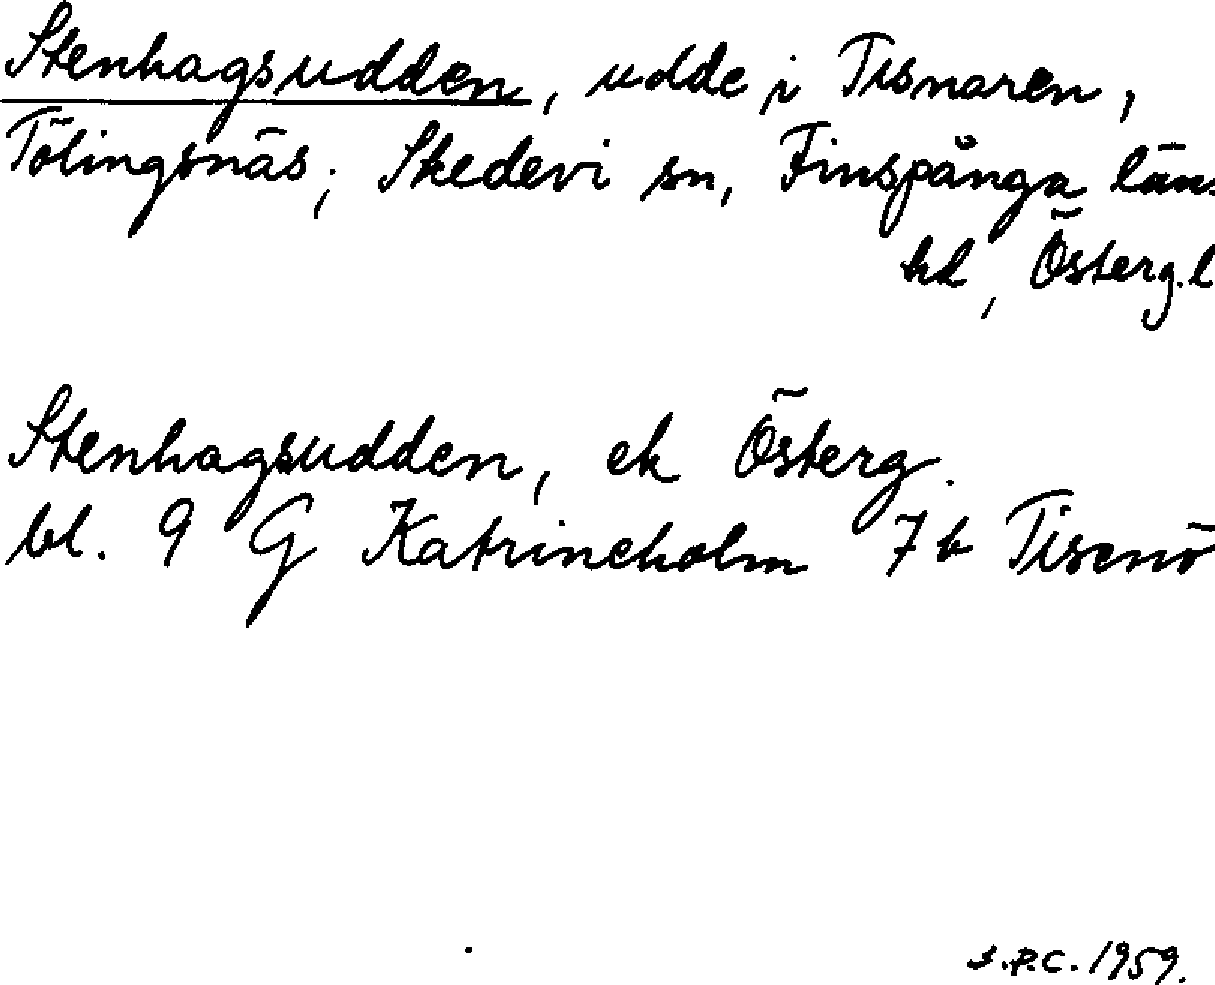 Stenhagsudden, udde i Tisnaren,
Tölingsnäs; Skedevi sn, Finspånga läns
hd, Österg.l
Stenhagsudden, ek Österg.
bl. 9 G Katrineholm 7b Tisenö
S.P.C. 1959.